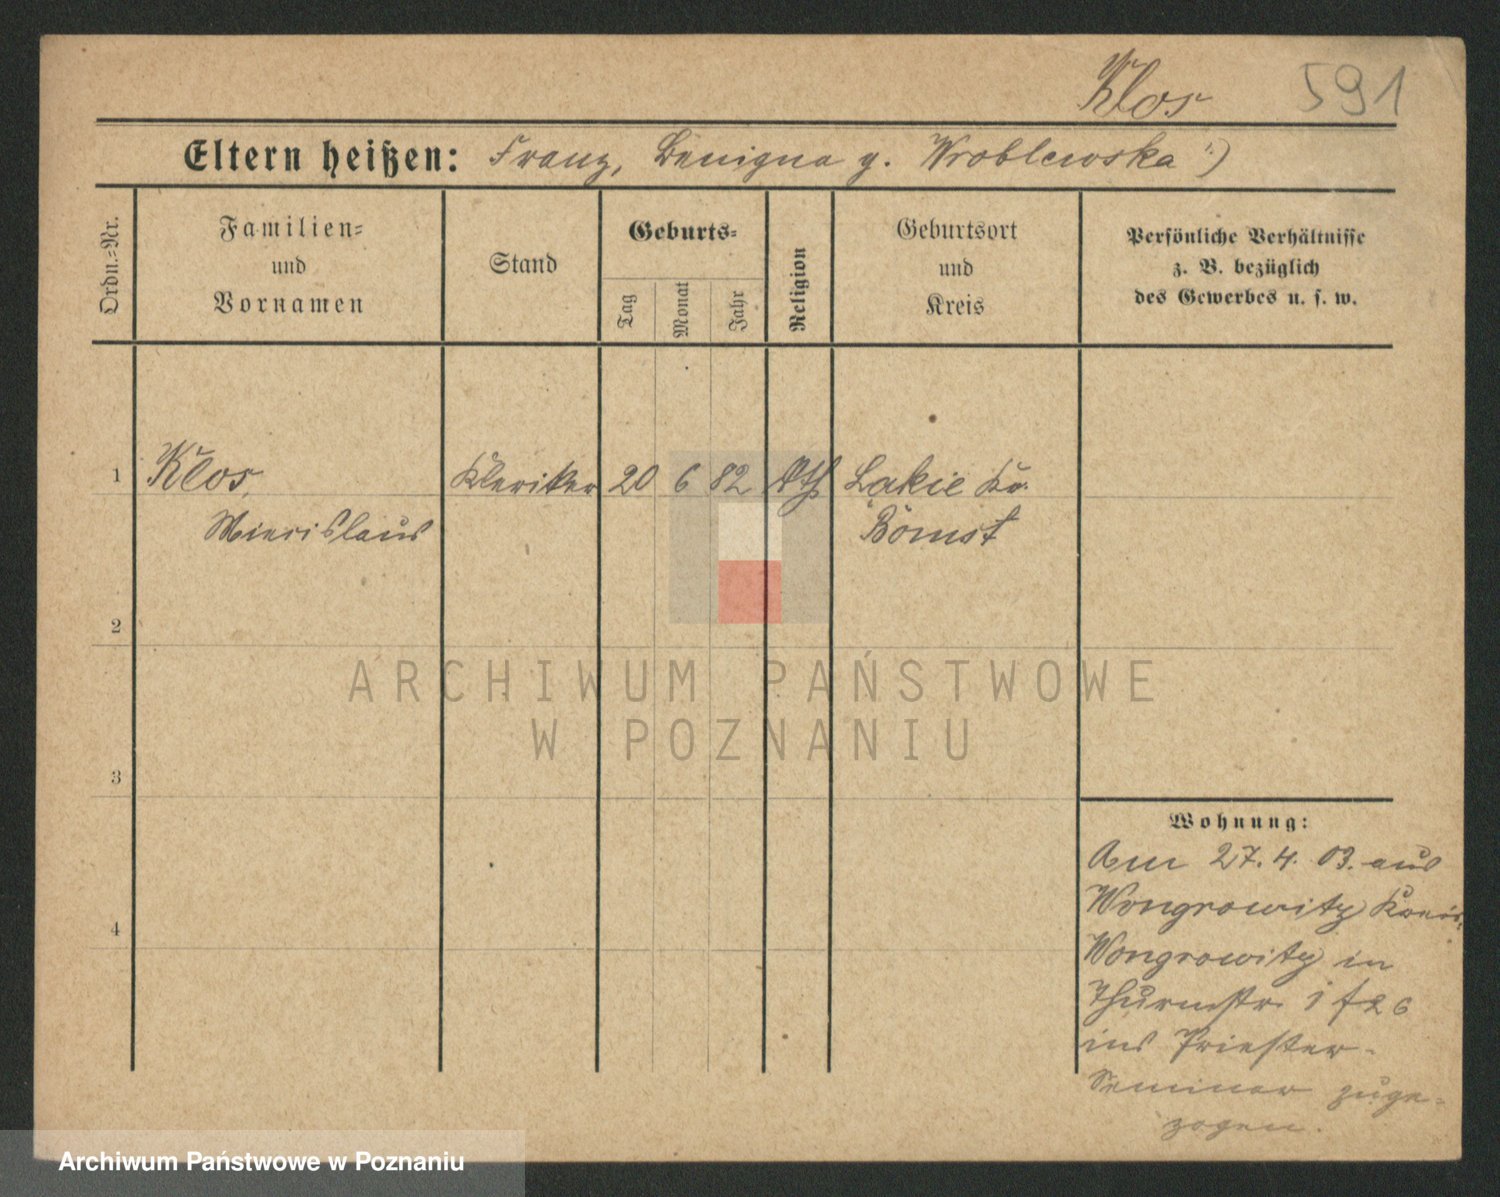 Klos 591
Eltern heißen: Franz, Benigna g. Wroblewska :)
Ordn.-Nr.
Familien-
und
Vornamen
Stand
Geburts-
Tag
Monat
Jahr
Religion
Geburtsort
und
Kreis
Persönliche Verhältnisse
z. B. bezüglich
des Gewerbes u. s. w.
1 Klos, Kleriker 20 6 82 kth Lakie Kr.
Miecislaus Bomst
2
3
4
Wohnung:
Am 27.4.03. aus
Wongrowitz Kreis
Wongrowitz in
Thurmstr. 1
ins Priester-
Seminar zuge-
zogen.
ARCHIWUM PAŃSTWOWE
W POZNANIU
Archiwum Państwowe w Poznaniu